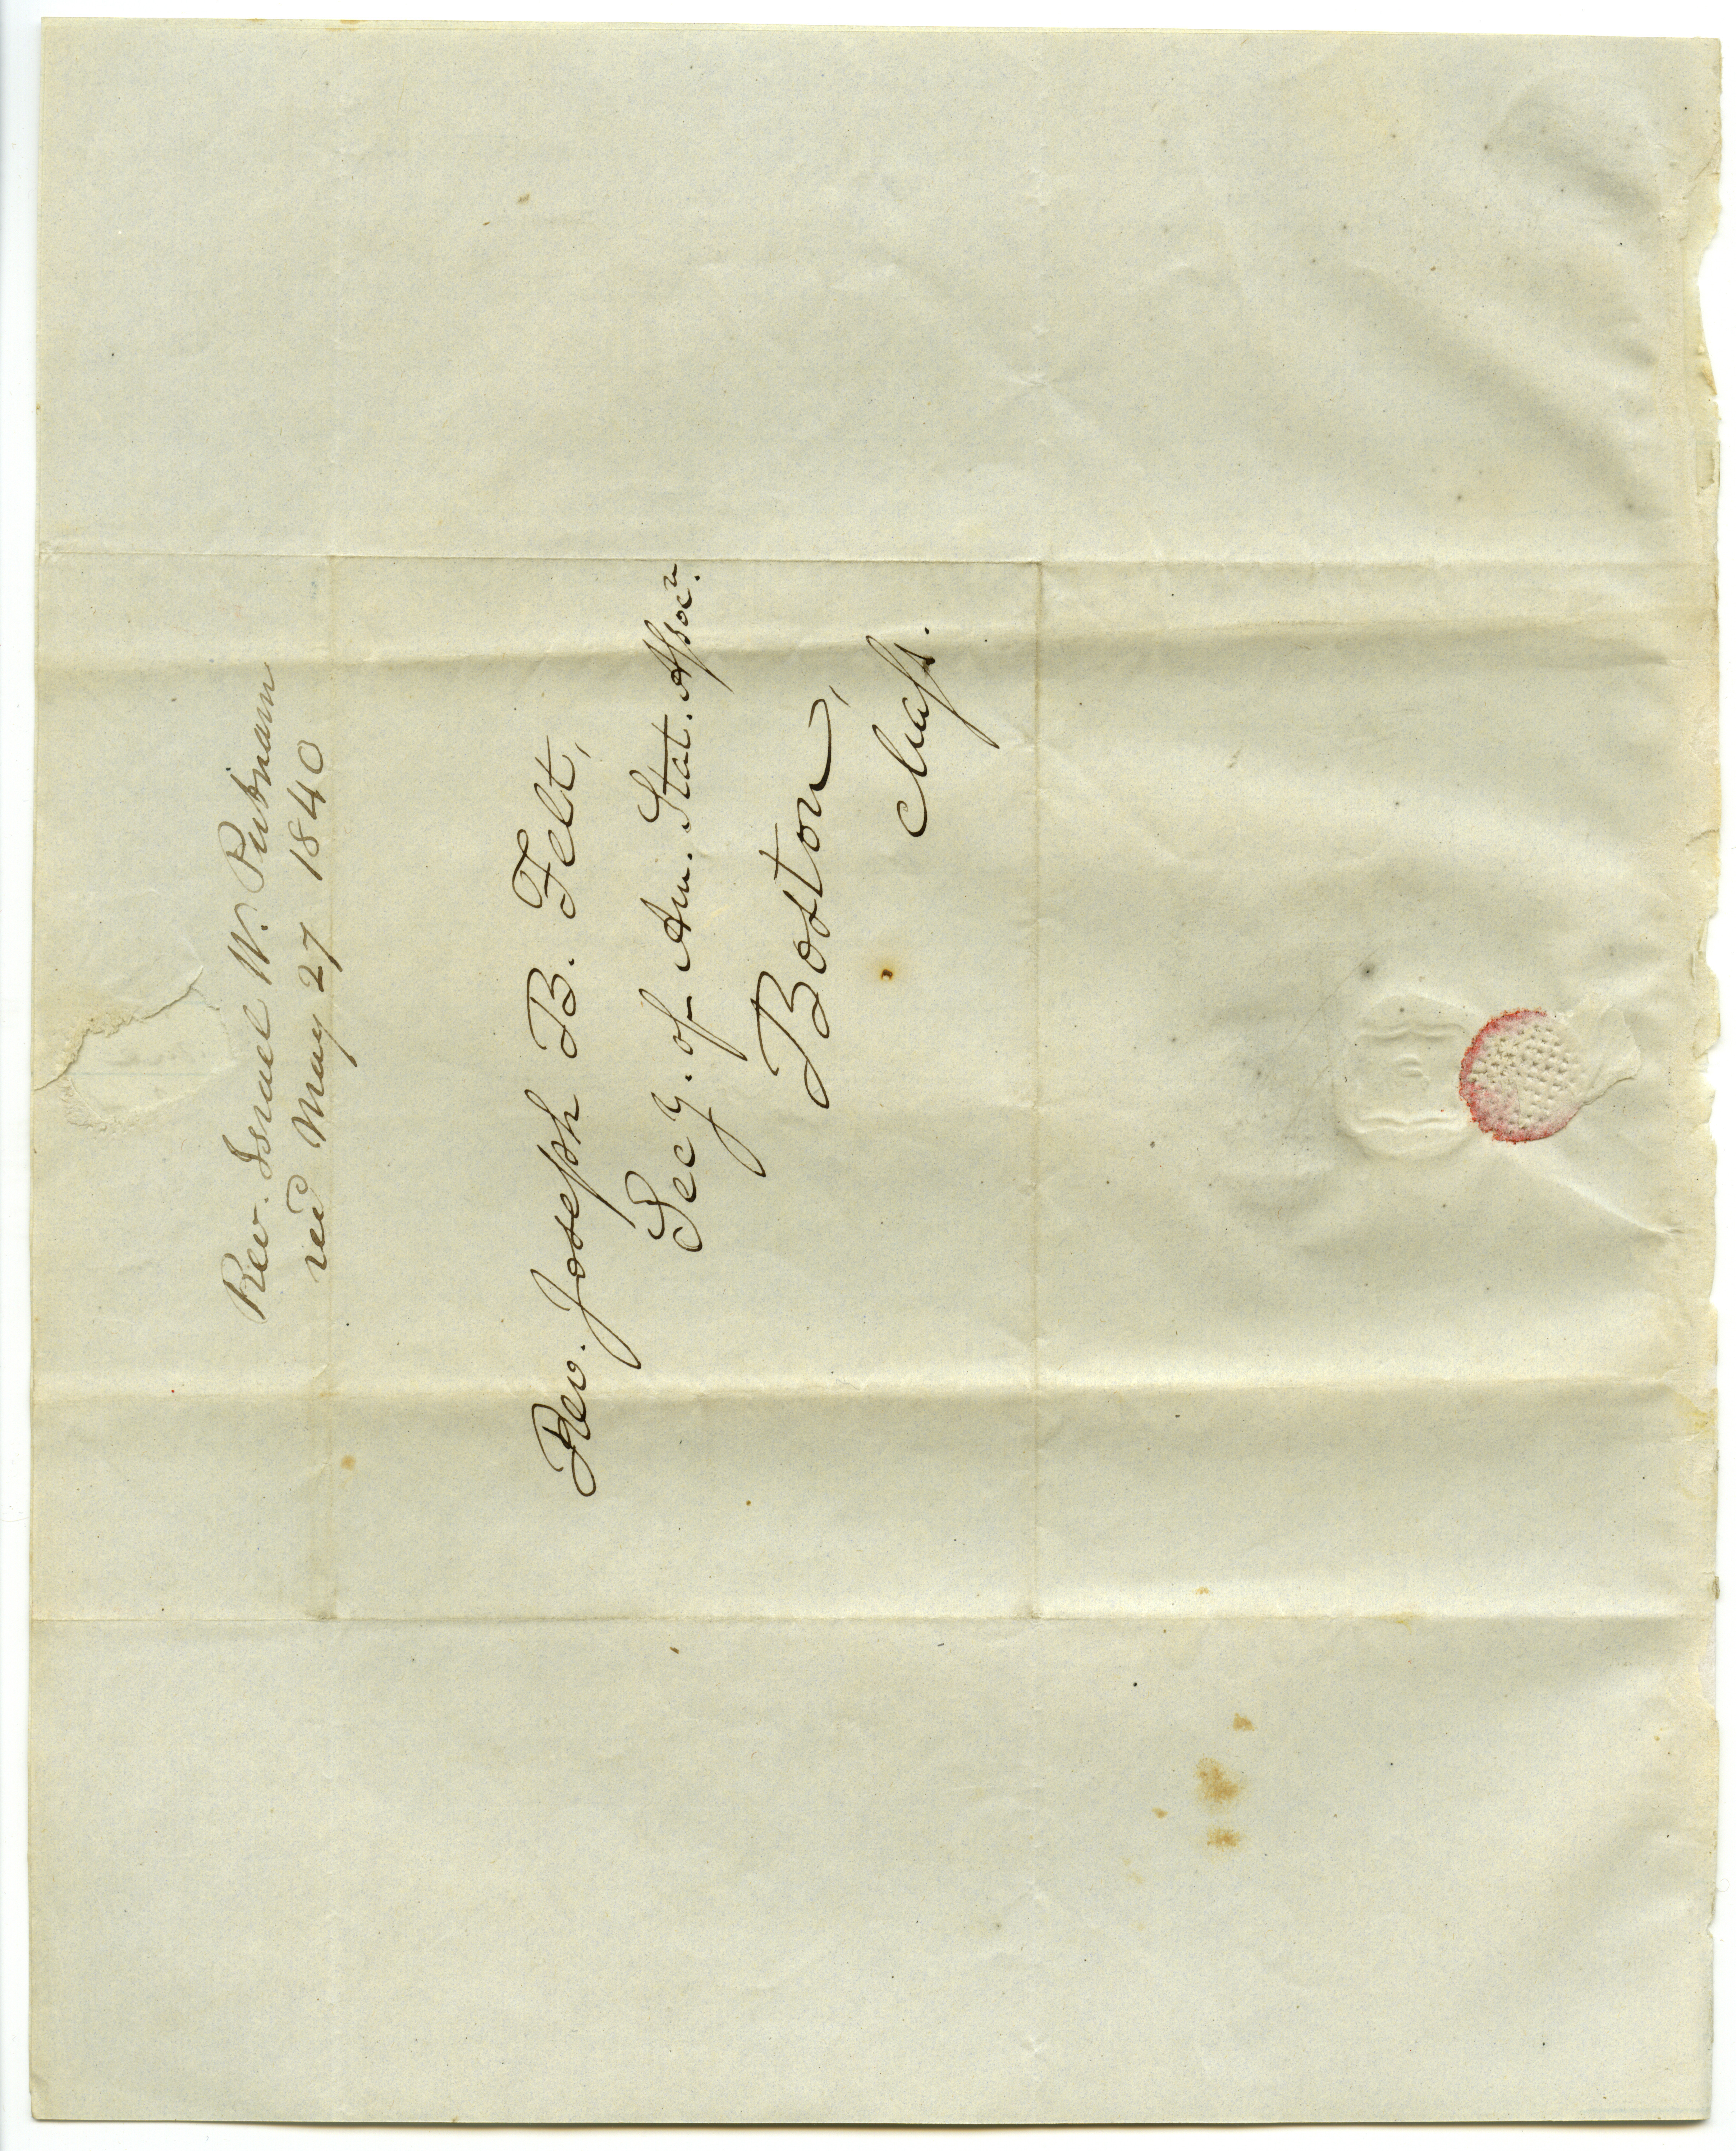 Rev. Israel W. Putnam
recd May 27 1840
Rev. Joseph B. Felt,
Secy. of Am. Stat. Assocn.
Boston,
Mass.